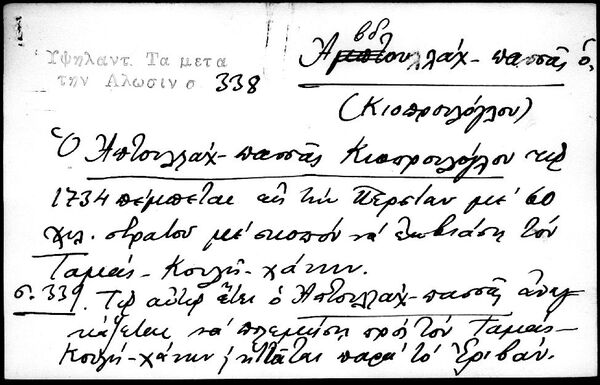 Υψηλαντ. Τα μετα
την Αλωσιν σ 338
Αβδουλλάχ-πασσᾶς ὁ.
(Κιοπρουλόγλου)
Ὁ Ἀπτουλλάχ-πασσᾶς Κιοπρουλόγλου τῷ
1734 πέμπεται εἰς τὴν Περσίαν μὲ 60
χιλ. στρατοῦ μὲ σκοπὸν νὰ ἐκβιάσῃ τὸν
Ταμὰς-Κουλῆ-χάνην.
σ. 339. Τῷ αὐτῷ ἔτει ὁ Ἀπτουλλάχ-πασσᾶς ἀναγ
κάζεται νὰ πολεμήσῃ πρὸς τὸν Ταμὰς-
Κουλῆ-χάνην ; ἡττᾶται παρὰ τὸ Ἐριβάν.